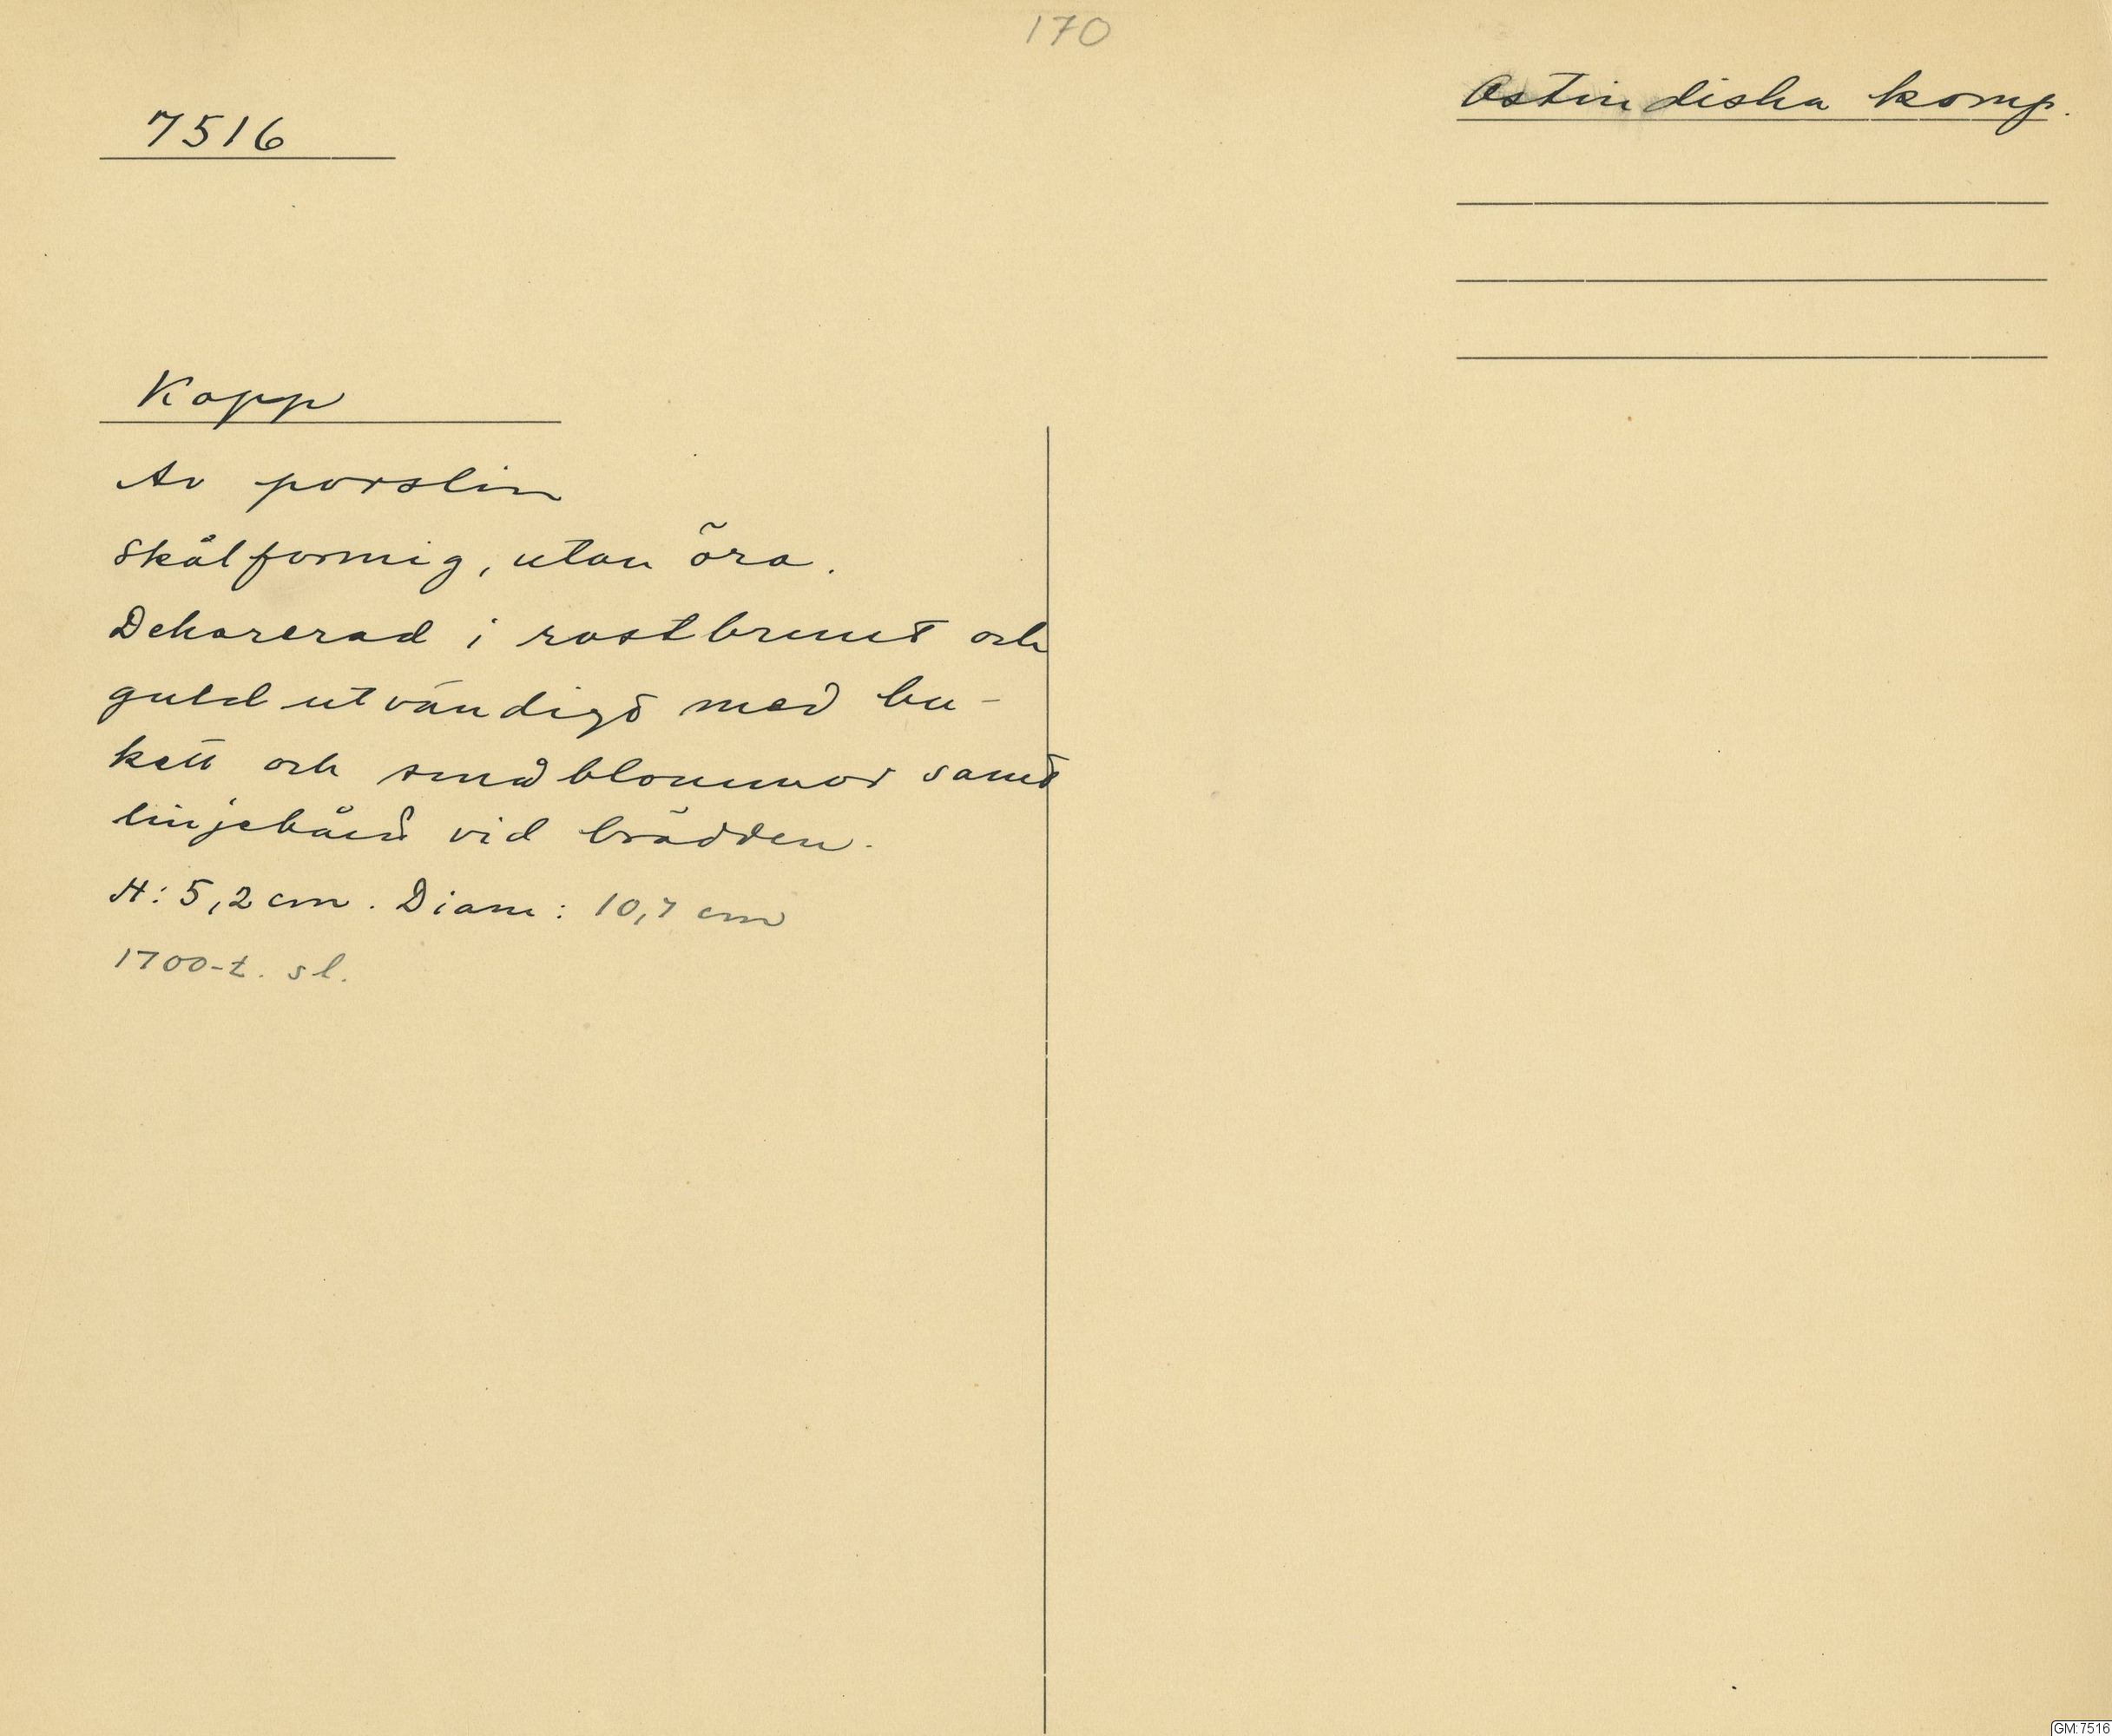 170
7516
Ostindiska komp.
Kopp
Av porslin
Skålformig, utan öra.
Dekorerad i rostbrunt och
guld utvändigt med bu-
kett och småblommor samt
linjebård vid brädden.
H: 5,2 cm. Diam: 10,7 cm
1700-t. sl.
GM:7516